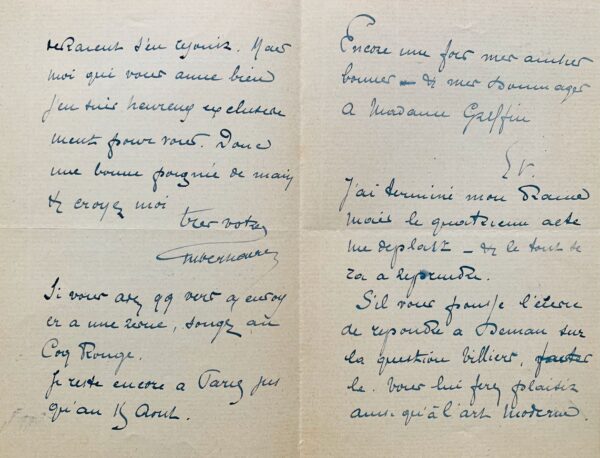 devraient s'en rejouir. Mais
moi qui vous aime bien
j'en suis heureux exclusive
ment pour vous. Donc
une bonne poignée de main
& croyez moi
tres votre
Emverhaeren
Si vous avez qq vers a envoy
er a une revue, songez au
Coq Rouge.
Je reste encore a Paris jus
qu'au 15 Aout.
Encore une fois mes amities
bonnes - & mes hommages
a Madame Griffin
EV.
J'ai terminé mon Drame
mais le quatrieme acte
me deplait - & le tout se
ra a reprendre.
S'il vous pousse l'envie
de repondre a Deman sur
la question Villiers, faites
le. Vous lui ferez plaisir
ainsi qu'à l'art Moderne.